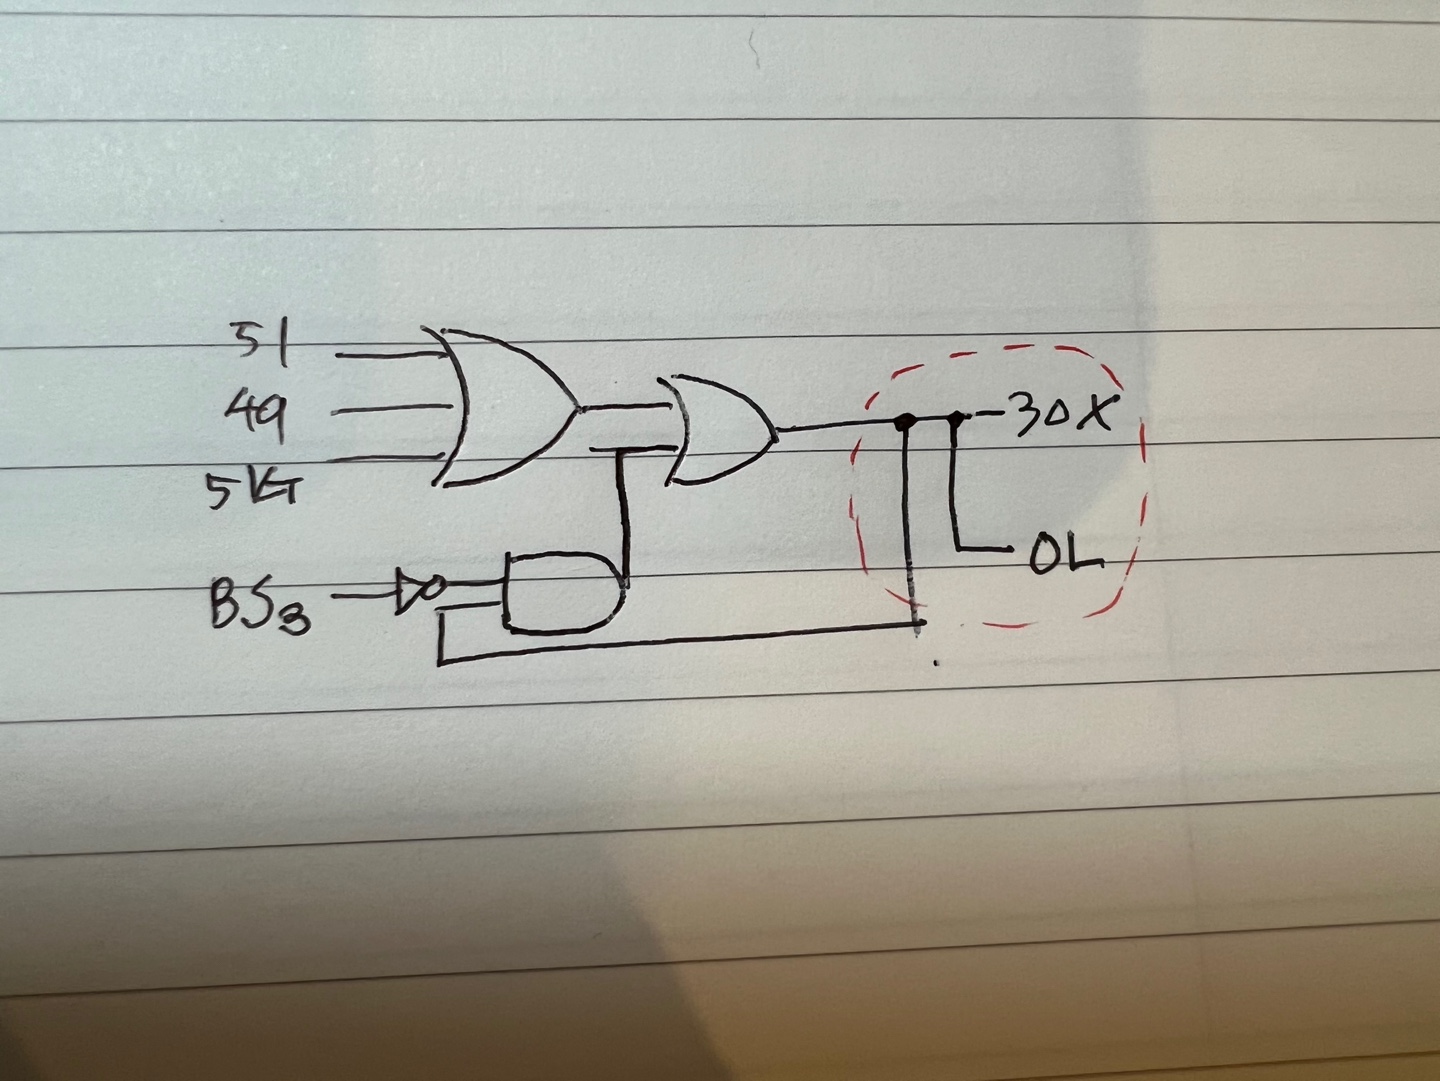 51
49
5KT
BS3
30X
OL